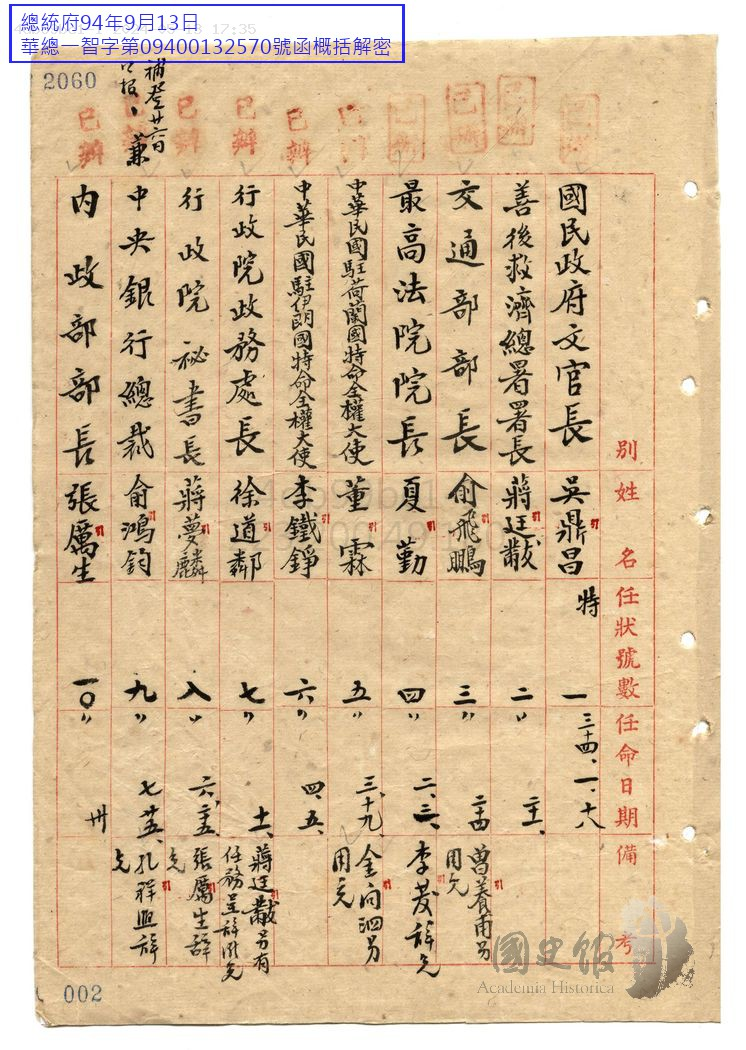 總統府94年9月13日
華總一智字第09400132570號函概括解密
17:35
2060
補登廿六日
已辦
已辦
已辦
已辦
已辦
別 姓名 任狀號數 任命日期 備考
國民政府文官長 吳鼎昌 特 一 三十四、一、十八
善後救濟總署署長 蔣廷黻 二〃
交通部部長 俞飛鵬 三〃 曾養甫另用免
最高法院院長 夏勤 四〃 李茇辭免
中華民國駐荷蘭國特命全權大使 董霖 五〃 三、十九、 金問泗另用免
中華民國駐伊朗國特命全權大使 李鐵錚 六〃 四、五、
行政院政務處長 徐道鄰 七〃 蔣廷黻另有任務呈辭附免
行政院祕書長 蔣夢麟 八〃 張厲生辭免
兼中央銀行總裁 俞鴻鈞 九〃 孔祥熙辭免
內政部部長 張厲生 一〇〃 卅
002
國史館
Academia Historica